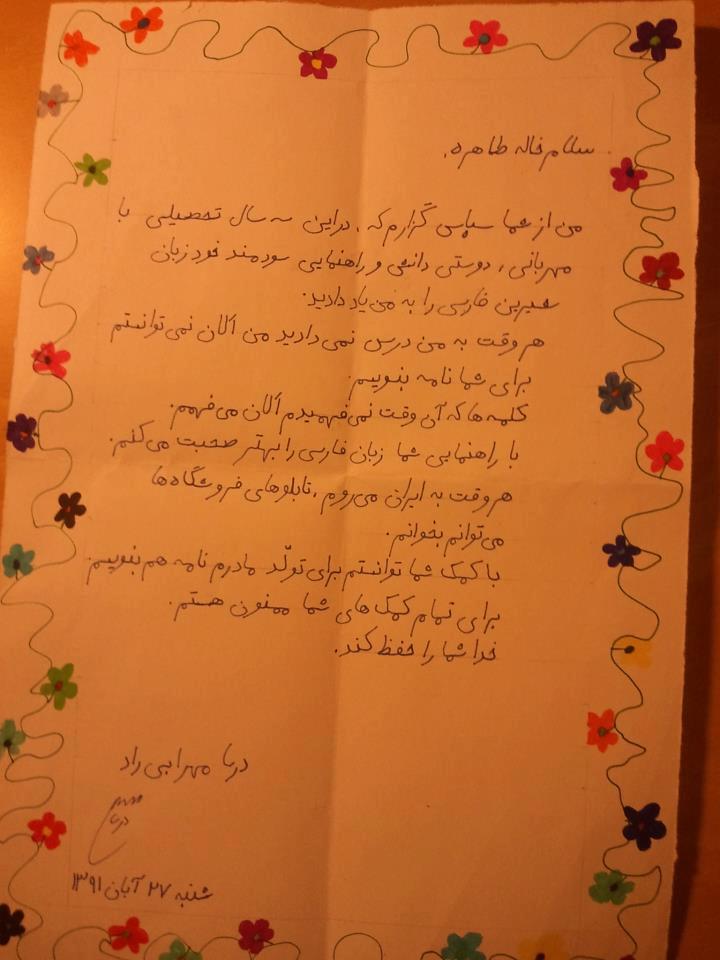 سلام خاله طاهره.
من از شما سپاس گزارم که، در این سه سال تحصیلی با
مهربانی، دوستی دانش و راهنمایی سودمند خود زبان
شیرین فارسی را به من یاد دادید.
هر وقت به من درس نمی دادید من الان نمی توانستم
برای شما نامه بنویسم.
کلمه ها که آن وقت نمی فهمیدم الان می فهمم.
با راهنمایی شما زبان فارسی را بهتر صحبت می کنم.
هر وقت به ایران می روم، تابلوهای فروشگاه ها
می توانم بخوانم.
با کمک شما توانستم برای تولّد مادرم نامه هم بنویسم.
برای تمام کمک های شما ممنون هستم.
خدا شما را حفظ کند.
دریا مهرابی راد
دریا
شنبه ۲۷ آبان ۱۳۹۱